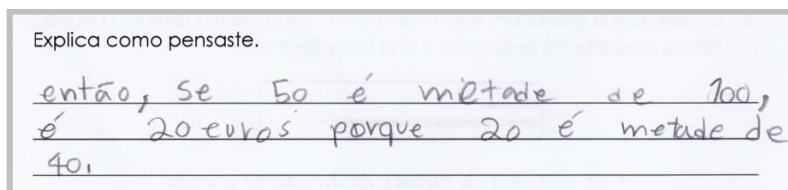 Explica como pensaste.
então, se 50 é metade de 100,
é 20 euros porque 20 é metade de
40.